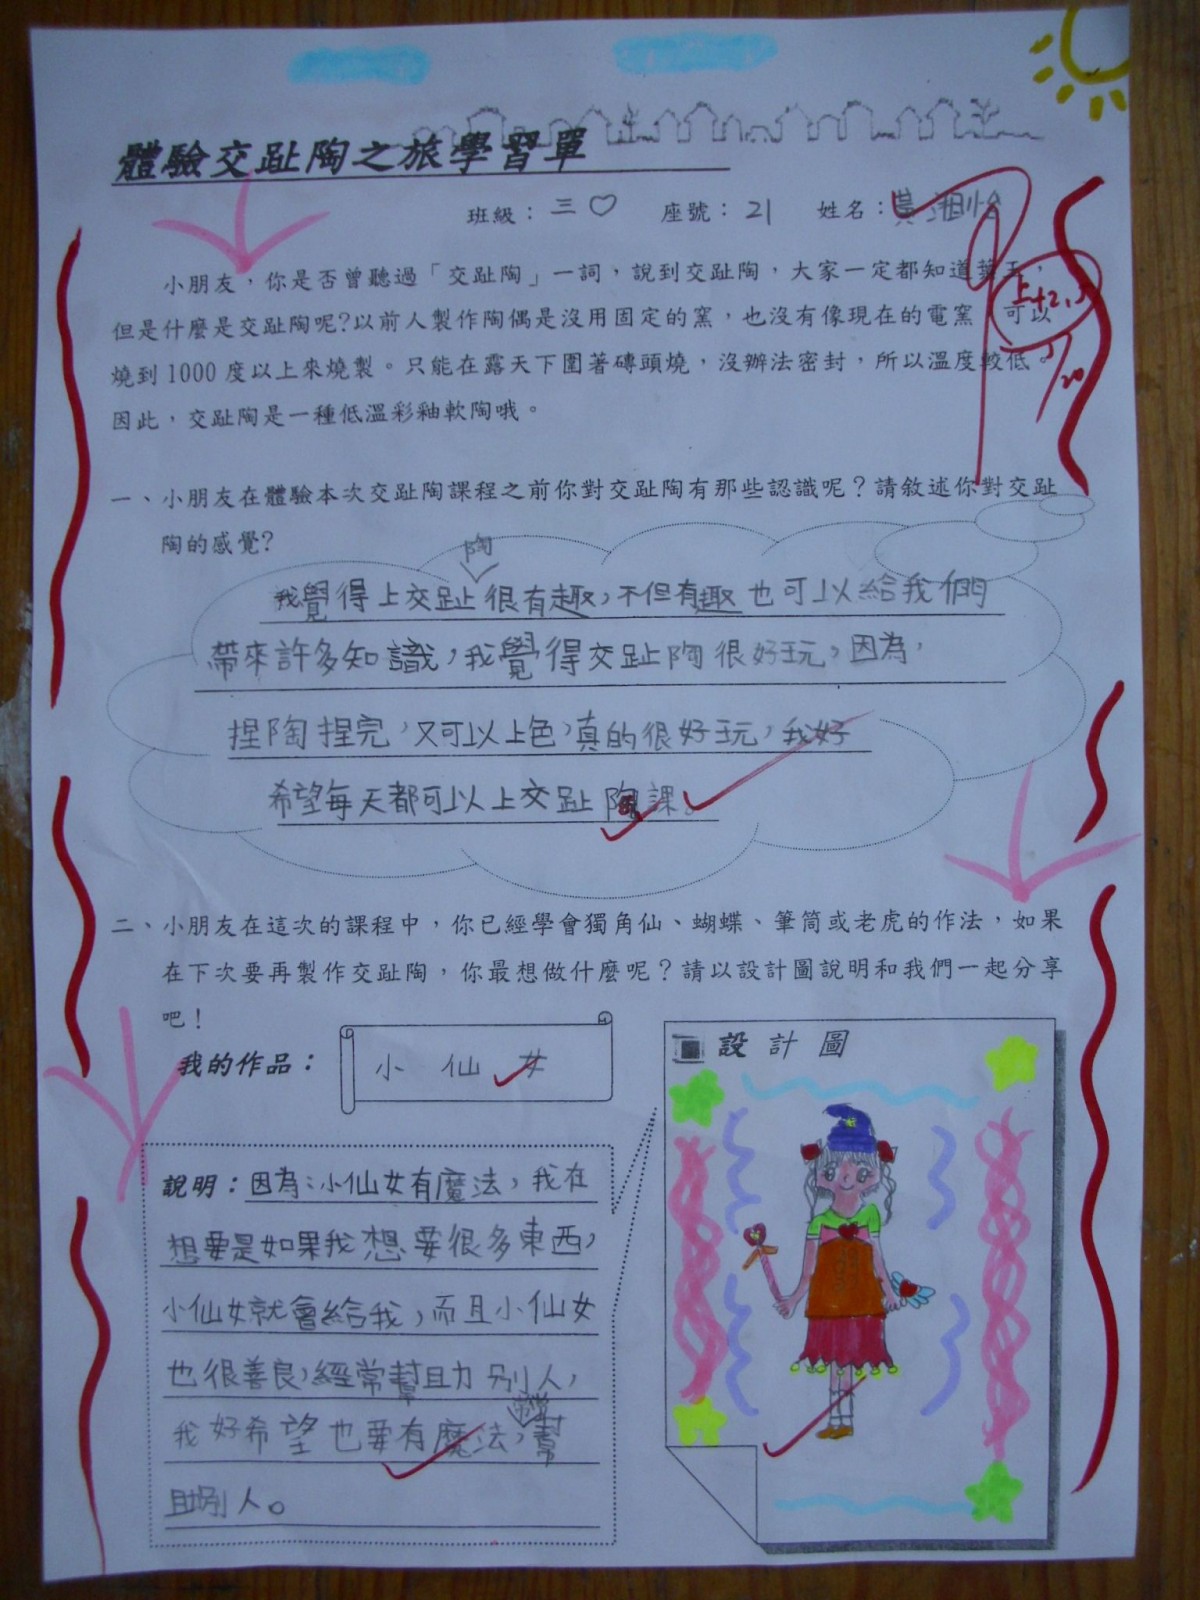 體驗交趾陶之旅學習單
班級：三♡ 座號：21 姓名：黃湘怡
小朋友，你是否曾聽過「交趾陶」一詞，說到交趾陶，大家一定都知道葉王，
但是什麼是交趾陶呢?以前人製作陶偶是沒用固定的窯，也沒有像現在的電窯 可以
燒到1000度以上來燒製。只能在露天下圍著磚頭燒，沒辦法密封，所以溫度較低。
因此，交趾陶是一種低溫彩釉軟陶哦。
上+2.5
1/20
一、小朋友在體驗本次交趾陶課程之前你對交趾陶有那些認識呢？請敘述你對交趾
陶的感覺?
陶
我覺得上交趾很有趣，不但有趣也可以給我們
帶來許多知識，我覺得交趾陶很好玩，因為，
捏陶捏完，又可以上色，真的很好玩，我好
希望每天都可以上交趾陶課。
二、小朋友在這次的課程中，你已經學會獨角仙、蝴蝶、筆筒或老虎的作法，如果
在下次要再製作交趾陶，你最想做什麼呢？請以設計圖說明和我們一起分享
吧！
我的作品：小仙女
設計圖
說明：因為小仙女有魔法，我在
想要是如果我想要很多東西，
小仙女就會給我，而且小仙女
也很善良，經常幫助別人，
常常
我好希望也要有魔法，幫
助別人。